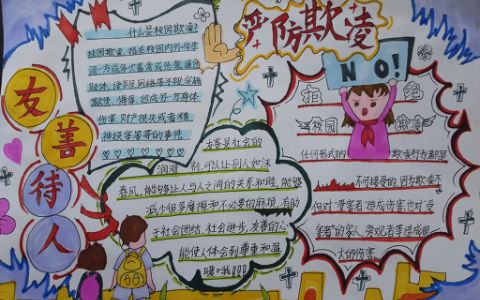 严防欺凌
NO!
拒绝
校园欺凌
友善待人
什么是校园欺凌?
校园欺凌,指在校园内外学生
间一方或多次蓄意或恶意通过
肢体、语言及网络等手段实施
欺负、侮辱,造成另一方身体
伤害、财产损失或者精
神损害等等的事件
友善是社会的
润滑剂,可以让别人如沐
春风,能够够让人与人之间的关系和睦,能够
减少很多摩擦和不必要的麻烦,有助
于社会团结,社会进步,友善的心
能使人体会到尊重和温
暖哦!!!
任何形式的 欺凌行为都是
不可接受的,因为欺凌不
但对“受害者”造成伤害,也对“受
害者”的家人、旁观者等造成很
大的伤害